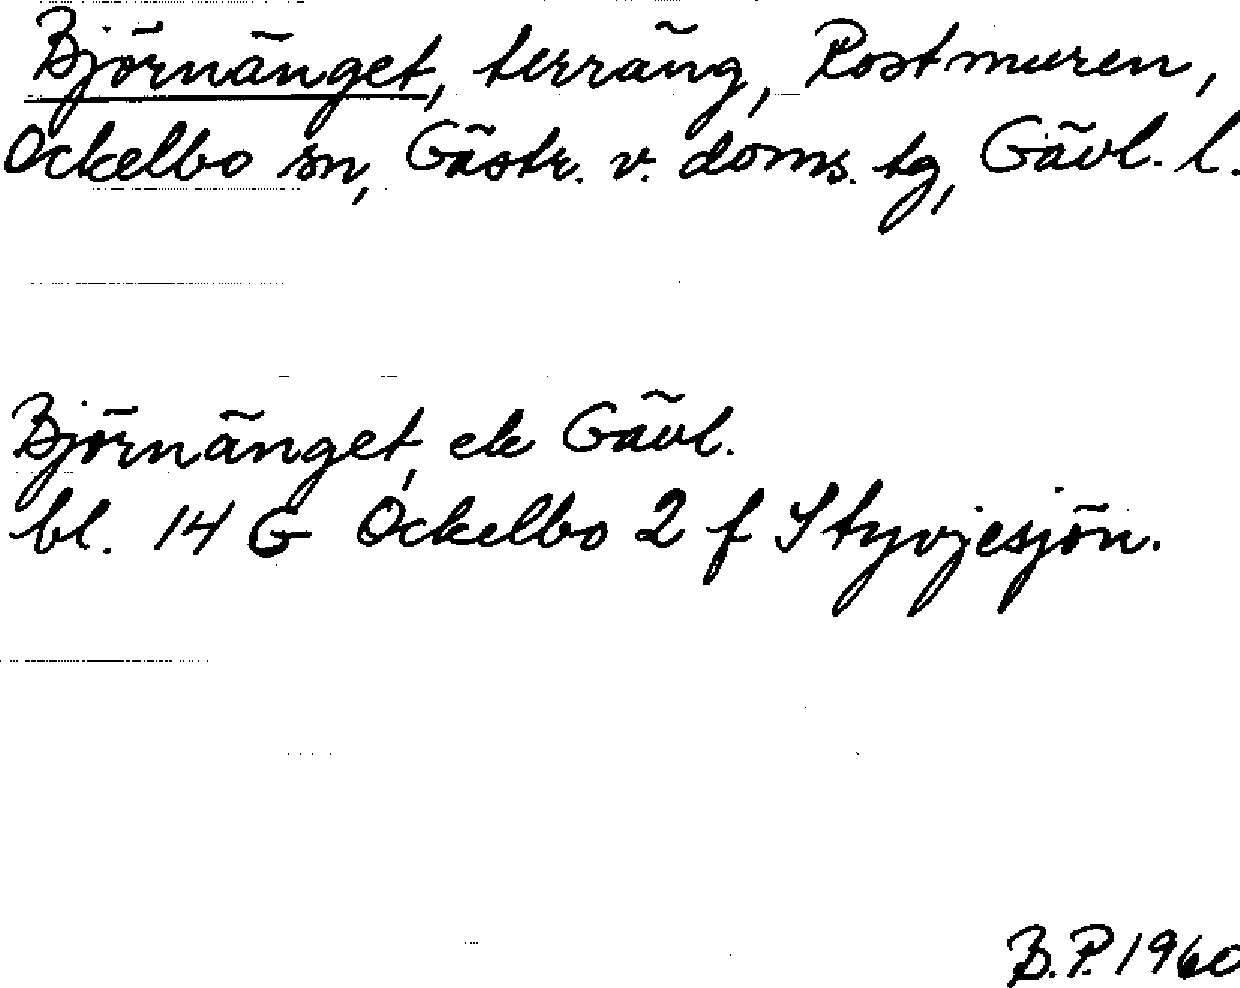 Björnänget, terräng, Rostmuren,
Ockelbo sn, Gästr. v. doms. tg, Gävl. l.
Björnänget, ek Gävl.
bl. 14 G Ockelbo 2 f Styvjesjön.
B.P. 1960